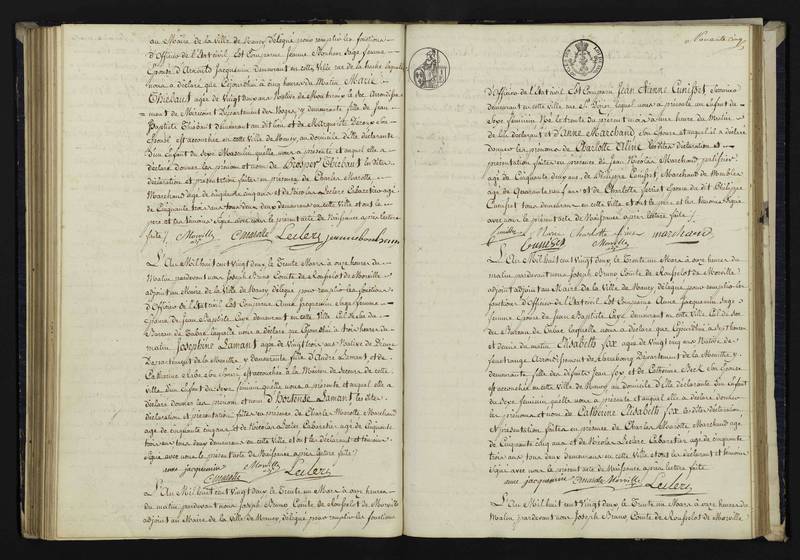 au Maire de la Ville de Nancy délégué pour remplir les fonctions
d'Officier de l'Etat civil, Est Comparue, Jeanne Sage femme
Epouse Jacquemin demeurant en cette Ville rue de la
nous a déclaré que Cejourd'hui à cinq heures du Matin Marie
Thiébaut agée de Vingt deux ans Native de
ment de Mirecourt Département des Vosges, y demeurante fille de Jean
Baptiste Thiébaut demeurant au dit lieu et de Marguerite son
Epouse est accouchée en cette Ville de Nancy, au domicile d'Elle déclarante
d'un Enfant du Sexe Masculin qu'elle nous a présenté et auquel elle a
déclaré donner les prénom et nom de Prosper Thiébaut les dites
déclaration et présentation faites en présence de Charles Marotte,
Marchand agé de cinquante cinq ans et de Nicolas Leclerc Cabaretier agé
de Cinquante trois ans tous deux demeurant en cette Ville et ont le
et les témoins Signé avec nous le présent acte de Naissance après lecture
faite /. Morville Cmarotte Leclerc
L'An Mil huit cent Vingt deux, le Trente Mars à onze heures du
matin pardevant nous Joseph Bruno Comte de Rouſselot de Morville
adjoint au Maire de la Ville de Nancy, délégué pour remplir les fonctions
d'Officier de l'Etat civil Est Comparue Anne Jacquemin Sage femme
Epouse de Jean Baptiste demeurant en cette Ville
laquelle nous a déclaré que Cejourd'hui à trois heures du
matin Josephine Lamant agée de Vingt trois ans Native de Dieuze
Département de la Meurthe y demeurante fille d'André Lamant et de
Catherine son Epouse, est accouchée à la Maison de Secours de cette
Ville d'un Enfant du Sexe feminin qu'elle nous a présenté et auquel elle a
déclaré donner les prénom et nom d'Hortense Lamant les dites
déclaration et présentation faites en présence de Charles Marotte, Marchand
agé de cinquante cinq ans et de Nicolas Leclerc Cabaretier agé de Cinquante
trois ans tous deux demeurant en cette Ville et ont les déclarant et témoins
Signé avec nous le présent acte de Naissance après lecture faite /
anne jacquemin Morville
Cmarotte Leclerc
L'An Mil huit cent Vingt deux le Trente un Mars à onze heures
du matin pardevant nous Joseph Bruno Comte de Rouſselot de Morville
adjoint au Maire de la Ville de Nancy, délégué pour remplir les fonctions
d'Officier de l'Etat civil Est Comparu Jean Etienne Cunisset
demeurant en cette Ville rue St Dizier lequel nous a présenté un Enfant du
Sexe feminin Né le trente du présent mois à une heure du matin
de lui déclarant et d'Anne Marchand Son Epouse et auquel il a déclaré
donner les prénoms de Charlotte Aline les dites déclaration et
présentation faites en présence de Jean Nicolas Marchand
agé de Cinquante deux ans, de Philippe Cunisset Marchand de Meubles
agé de Quarante neuf ans et de Charlotte Epouse du dit Philippe
Cunisset tous demeurant en cette Ville et ont le père et les témoins Signé
avec nous le présent acte de Naissance après lecture faite /.
Cunisset Marie Charlotte marchand
Cunisset Morville
L'An Mil huit cent Vingt deux, le Trente un Mars à onze heures du
matin pardevant nous Joseph Bruno Comte de Rouſselot de Morville
adjoint au Maire de la Ville de Nancy, délégué pour remplir les
fonctions d'Officier de l'Etat civil Est Comparue Anne Jacquemin Sage
femme Epouse de Jean Baptiste demeurant en cette Ville
laquelle nous a déclaré que Cejourd'hui à Sept heures
et demie du matin Elisabeth Fox agée de Vingt cinq ans Native de
fenetrange Arrondiſsement de Sarrebourg Département de la Meurthe y
demeurante fille des défunts Jean Fox et de Catherine Son Epouse
est accouchée en cette Ville de Nancy au domicile d'Elle déclarante d'un Enfant
du Sexe feminin qu'elle nous a présenté et auquel elle a déclaré donner
les prénoms et nom de Catherine Elisabeth Fox les dites déclaration
et présentation faites en présence de Charles Marotte Marchand agé
de Cinquante cinq ans et de Nicolas Leclerc Cabaretier agé de cinquante
trois ans tous deux demeurant en cette Ville et ont les déclarant et témoins
Signé avec nous le présent acte de Naissance après lecture faite
anne jacquemin Cmarotte Morville
Leclerc
L'An Mil huit cent Vingt deux, le Trente un Mars à onze heures du
Matin, pardevant nous Joseph Bruno Comte de Rouſselot de Morville